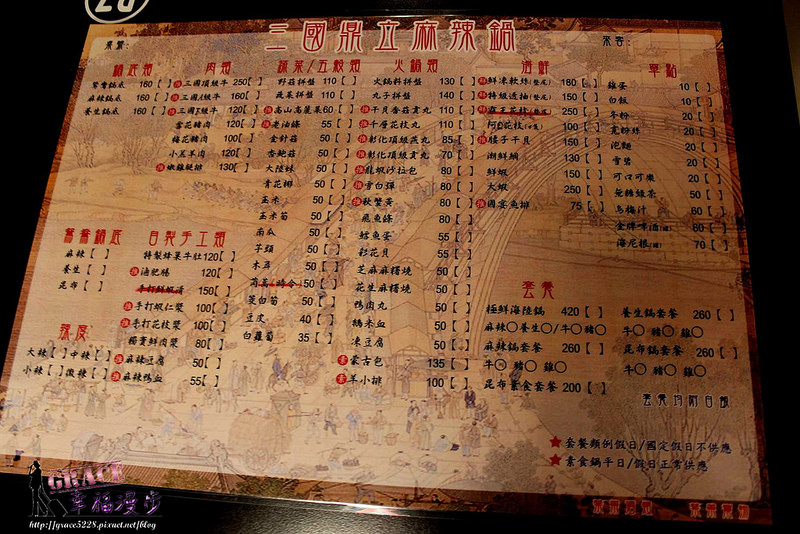 20
三國鼎立麻辣鍋
鍋底類
鴛鴦鍋底 160 [ ]
麻辣鍋底 160 [ ]
養生鍋底 160 [ ]
肉類
三國頂級牛 250 [ ]
三國1級牛 160 [ ]
三國下級牛 120 [ ]
雪花豬肉 120 [ ]
梅花豬肉 100 [ ]
小羔羊肉 120 [ ]
嫩雞腿排 130 [ ]
蔬菜/五穀類
野菇拼盤 110 [ ]
蔬菜拼盤 110 [ ]
高山高麗菜 60 [ ]
老油條 55 [ ]
金針菇 50 [ ]
杏鮑菇 50 [ ]
大陸妹 50 [ ]
青花椰 50 [ ]
玉米 50 [ ]
玉米筍 50 [ ]
南瓜 50 [ ]
芋頭 50 [ ]
木耳 50 [ ]
茼蒿(時令) 50 [ ]
茭白筍 50 [ ]
豆皮 40 [ ]
白蘿蔔 35 [ ]
火鍋類
火鍋料拼盤 130 [ ]
丸子拼盤 140 [ ]
干貝香菇貢丸 110 [ ]
千層花枝丸 110 [ ]
彰化頂級燕丸 85 [ ]
彰化頂級貢丸 70 [ ]
龍蝦沙拉包 80 [ ]
雪白彈 80 [ ]
秋蟹黃 80 [ ]
飛魚條 80 [ ]
鱈魚蛋 50 [ ]
彩花貝 50 [ ]
芝麻麻糬燒 50 [ ]
花生麻糬燒 50 [ ]
鴨肉丸 50 [ ]
糯米血 50 [ ]
凍豆腐 50 [ ]
蒙古包 135 [ ]
羊小排 100 [ ]
海鮮
鮮凍軟絲(整尾) 180 [ ]
特級透抽(整尾) 150 [ ]
250 [ ]
100 [ ]
腰子干貝 150 [ ]
潮鯛 130 [ ]
鮮蝦 150 [ ]
大蝦 250 [ ]
國宴魚排 75 [ ]
單點
雞蛋 10 [ ]
白飯 10 [ ]
冬粉 20 [ ]
寬粉絲 20 [ ]
泡麵 20 [ ]
雪碧 20 [ ]
可口可樂 20 [ ]
無糖綠茶 50 [ ]
烏梅汁 60 [ ]
金牌啤酒 60 [ ]
海尼根 70 [ ]
鴛鴦鍋底
麻辣 [ ]
養生 [ ]
昆布 [ ]
自製手工類
特製蜂巢牛肚 120 [ ]
滷肥腸 120 [ ]
手打鮮蝦滑 150 [ ]
手打蝦仁漿 100 [ ]
手打花枝漿 90 [ ]
獨賣鮮肉漿 80 [ ]
麻辣豆腐 50 [ ]
麻辣鴨血 55 [ ]
辣度
大辣 [ ] 中辣 [ ]
小辣 [ ] 微辣 [ ]
套餐
極鮮海陸鍋 420 [ ]
麻辣○養生○/牛○豬○
麻辣鍋套餐 260 [ ]
牛○ 豬○ 雞○
昆布素食套餐 200 [ ]
養生鍋套餐 260 [ ]
牛○ 豬○ 雞○
昆布鍋套餐 260 [ ]
牛○ 豬○ 雞○
套餐均附白飯
★套餐類例假日/國定假日不供應
★素食鍋平日/假日正常供應
GRACE
幸福漫步
http://grace5228.pixnet.net/blog